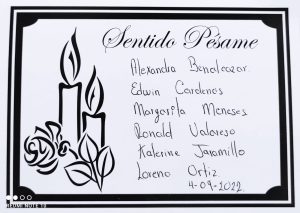 Sentido Pésame
Alexandra Benalcazar
Edwin Cardenos
Margarita Meneses
Ronald Valoreso
Katerine Jaramillo
Loreno Ortiz
4-09-2022.
REDMI NOTE 10